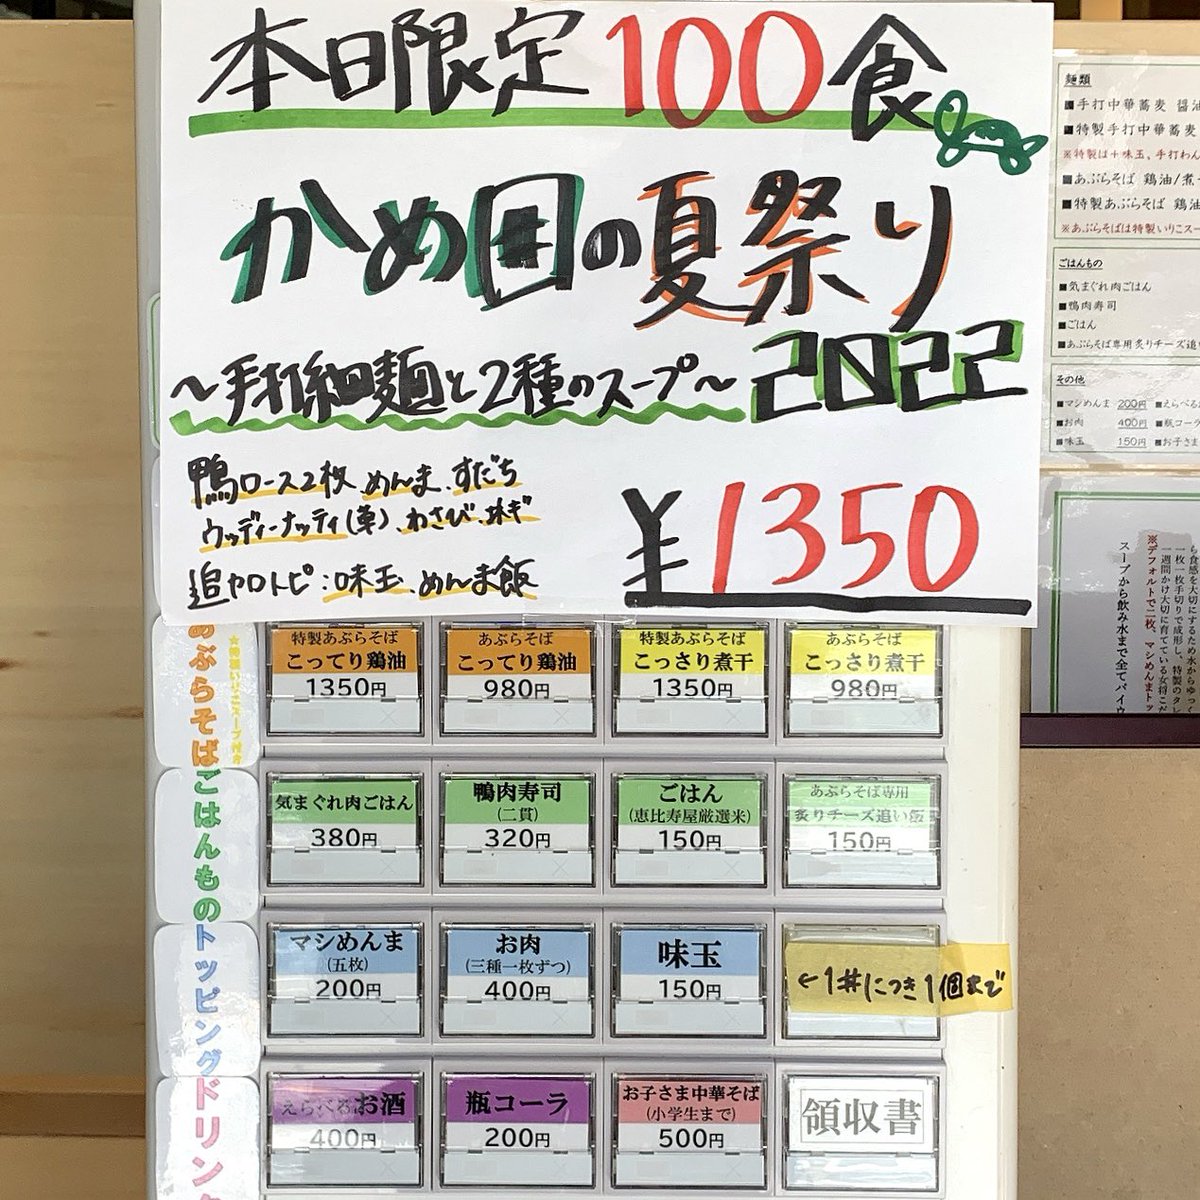 本日限定100食
かめ囲の夏祭り
2022
〜手打細麺と2種のスープ〜
鴨ロース2枚、めんま、すだち
ウッディーナッティ(草)、わさび、ねぎ
追加トピ:味玉、めんま飯
¥1350
あぶらそば
特製あぶらそば
こってり鶏油
1350円
あぶらそば
こってり鶏油
980円
特製あぶらそば
こっさり煮干
1350円
あぶらそば
こっさり煮干
980円
ごはんもの
気まぐれ肉ごはん
380円
鴨肉寿司
(二貫)
320円
ごはん
(恵比寿屋厳選米)
150円
あぶらそば専用
炙りチーズ追い飯
150円
トッピング
マシめんま
(五枚)
200円
お肉
(三種一枚ずつ)
400円
味玉
150円
←1丼につき1個まで
ドリンク
えらべるお酒
400円
瓶コーラ
200円
お子さま中華そば
(小学生まで)
500円
領収書
麺類
■手打中華蕎麦 醤油
■特製手打中華蕎麦
※特製は+味玉、手打わん
■あぶらそば 鶏油/煮
■特製あぶらそば 鶏油
※あぶらそばは特製いりこスー
ごはんもの
■気まぐれ肉ごはん
■鴨肉寿司
■ごはん
■あぶらそば専用炙りチーズ追い
その他
■マシめんま 200円 ■えらべる
■お肉 400円 ■瓶コーラ
■味玉 150円 ■お子さま
ら食感を大切にするため水からゆっく
一枚一枚手切りで成形し、特製のタ
一週間かけ大切に育てている女将こだ
※デフォルトで二枚、マシめんまトッ
スープから飲み水まで全てパイウ